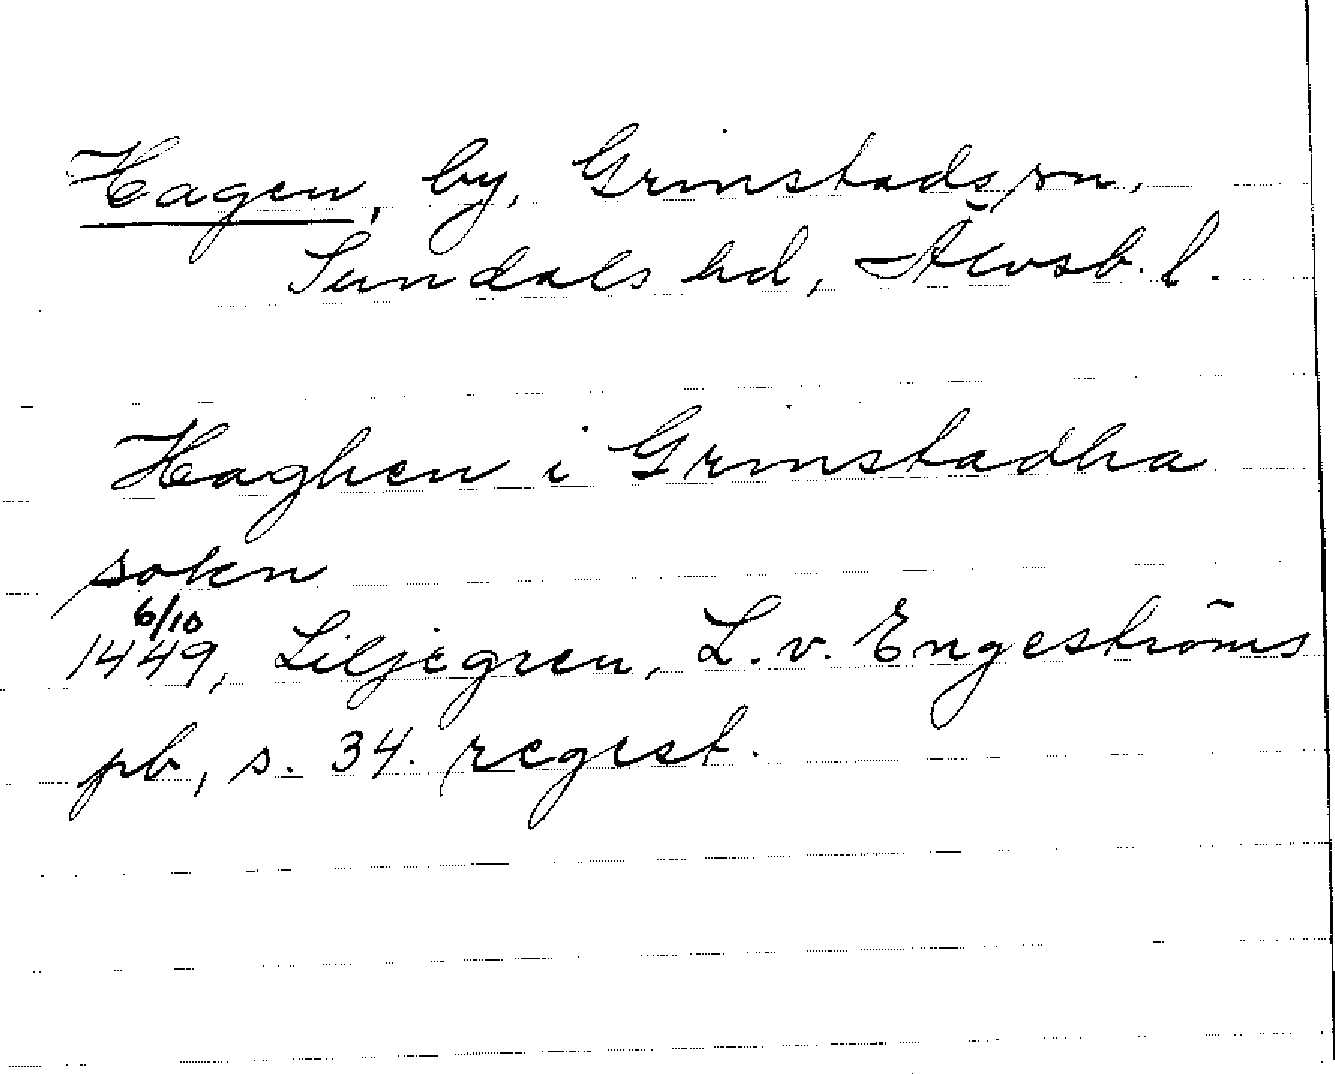 Hagen, by, Grinstads sn,
Sundals hd, Älvsb. l.
Haghen i Grinstadha
sokn
6/10
1449, Liljegren, L. v. Engeströms
pb, s. 34. regest.